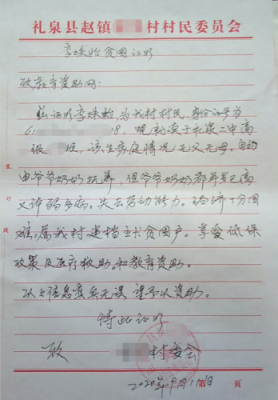 礼泉县赵镇 村村民委员会
李姝贻贫困证明
致教育资助网:
兹证明李姝贻,为我村村民,身份证号为
61 18,现就读于礼泉二中高
级 班,该生家庭情况无父无母,自幼
由爷爷奶奶抚养,但爷爷奶奶都年纪已高
又体弱多病,失去劳动能力。经济十分困
难,属我村建档立卡贫困户。享受低保
政策及医疗救助和教育资助。
以上信息真实无误,望予以资助。
特此证明
致 村委会
2020年9月17日
第 页